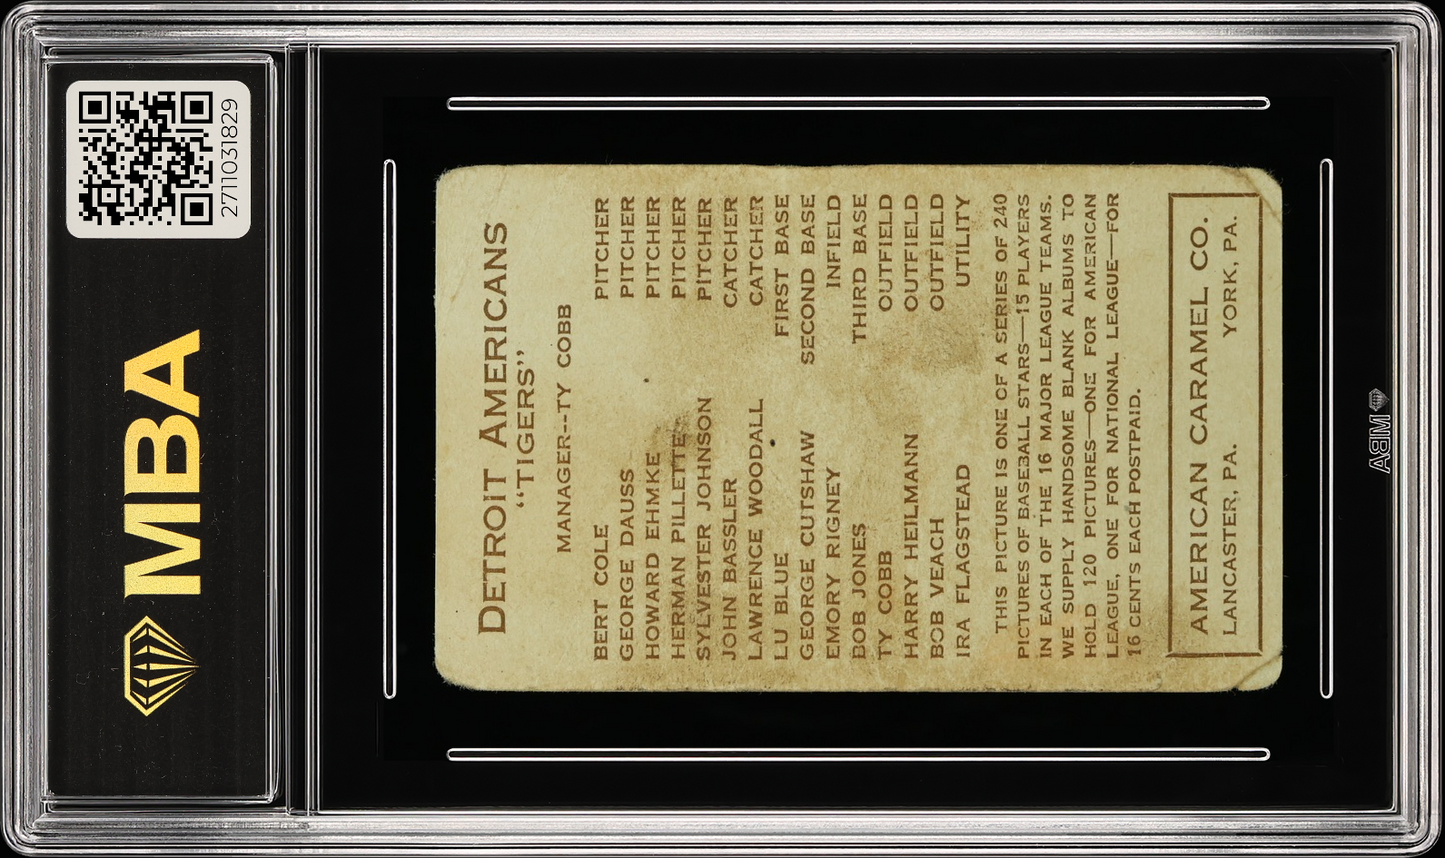 2711031829
MBA
DETROIT AMERICANS
“TIGERS”
MANAGER--TY COBB
BERT COLE PITCHER
GEORGE DAUSS PITCHER
HOWARD EHMKE PITCHER
HERMAN PILLETTE PITCHER
SYLVESTER JOHNSON PITCHER
JOHN BASSLER CATCHER
LAWRENCE WOODALL CATCHER
LU BLUE FIRST BASE
GEORGE CUTSHAW SECOND BASE
EMORY RIGNEY INFIELD
BOB JONES THIRD BASE
TY COBB OUTFIELD
HARRY HEILMANN OUTFIELD
BOB VEACH OUTFIELD
IRA FLAGSTEAD UTILITY
THIS PICTURE IS ONE OF A SERIES OF 240
PICTURES OF BASEBALL STARS—15 PLAYERS
IN EACH OF THE 16 MAJOR LEAGUE TEAMS.
WE SUPPLY HANDSOME BLANK ALBUMS TO
HOLD 120 PICTURES—ONE FOR AMERICAN
LEAGUE, ONE FOR NATIONAL LEAGUE—FOR
16 CENTS EACH POSTPAID.
AMERICAN CARAMEL CO.
LANCASTER, PA. YORK, PA.
MBA